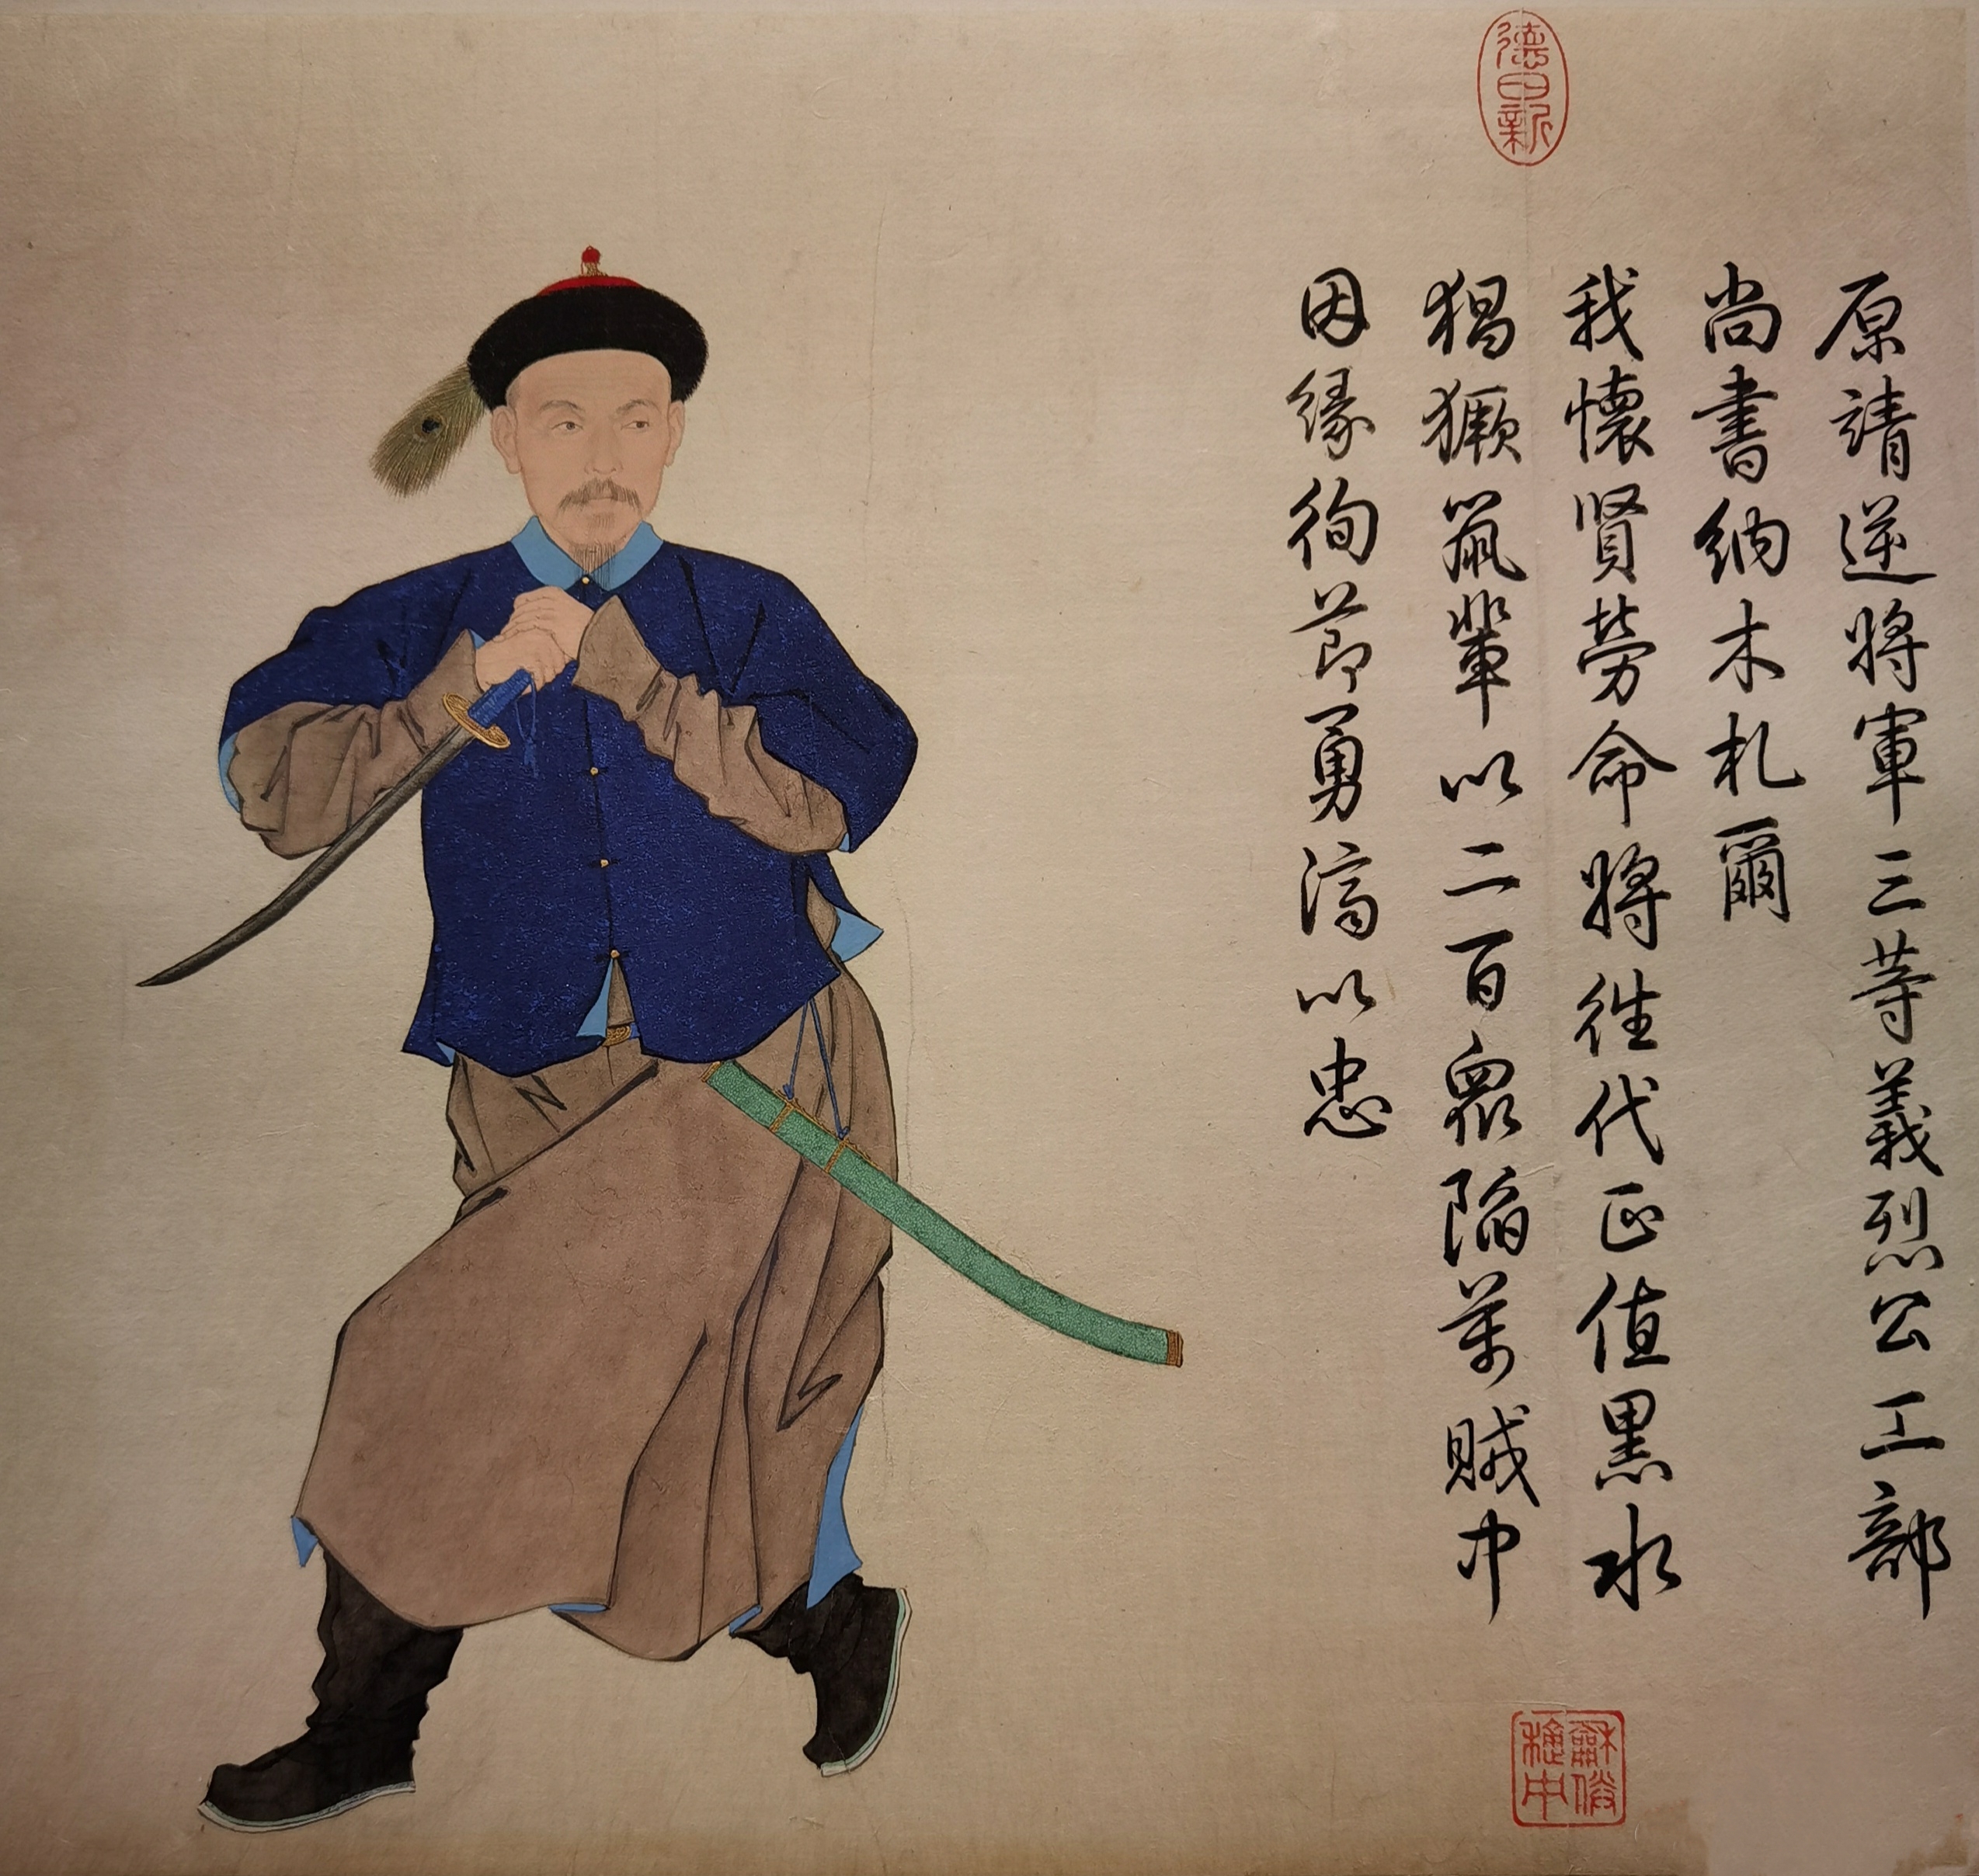 德日新
原靖逆將軍三等義烈公工部
尚書納木札爾
我懷賢勞命將徃代正值黑水
猖獗鼠輩以二百眾陷萬賊中
因緣徇節勇濟以忠